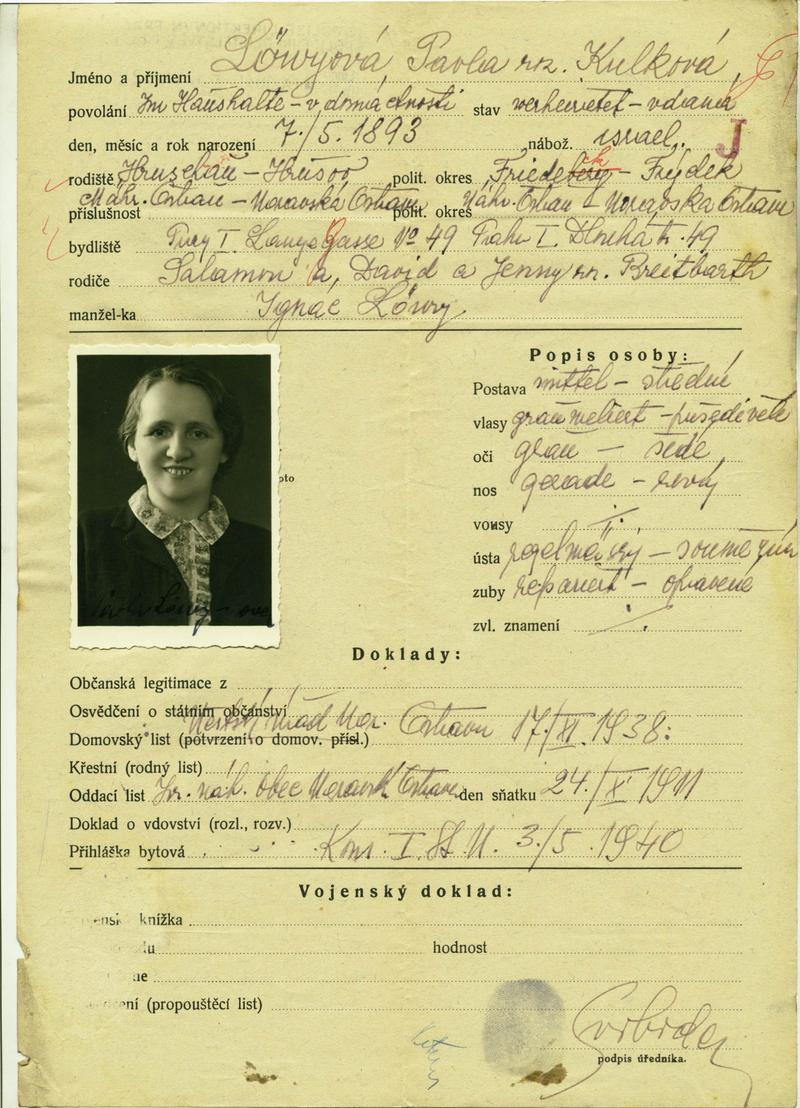 Jméno a příjmení Löwyová, Pavla roz. Kulková,
povolání Im Haushalte – v domácnosti stav verheiratet – vdaná
den, měsíc a rok narození 7./5. 1893 nábož. israel. J
rodiště Hruschau – Hrušov polit. okres Friedek – Frýdek
příslušnost Mähr. Ostrau – Moravská Ostrava polit. okres Mähr. Ostrau – Moravská Ostrava
bydliště Prag I. Lange Gasse No 49 Praha I. Dlouhá tř. 49
rodiče Salamon a David a Jenny roz. Breitbarth
manžel-ka Ignác Löwy
Popis osoby:
Postava mittel – střední
vlasy grau meliert – prošedivělé
oči grau – šedé
nos gerade – rovný
vousy
ústa – souměrná
zuby repariert – opravené
zvl. znamení
oto
Doklady:
Občanská legitimace z
Osvědčení o státním občanství
Domovský list (potvrzení o domov. přísl.) Městský úřad Mor. Ostrava 17/XI. 1938.
Křestní (rodný list)
Oddací list Isr. náb. obec Moravská Ostrava den sňatku 24./X 1911
Doklad o vdovství (rozl., rozv.)
Přihláška bytová Kom. I. St. M. 3./5. 1940
Vojenský doklad:
knížka
hodnost
ení (propouštěcí list)
podpis úředníka.